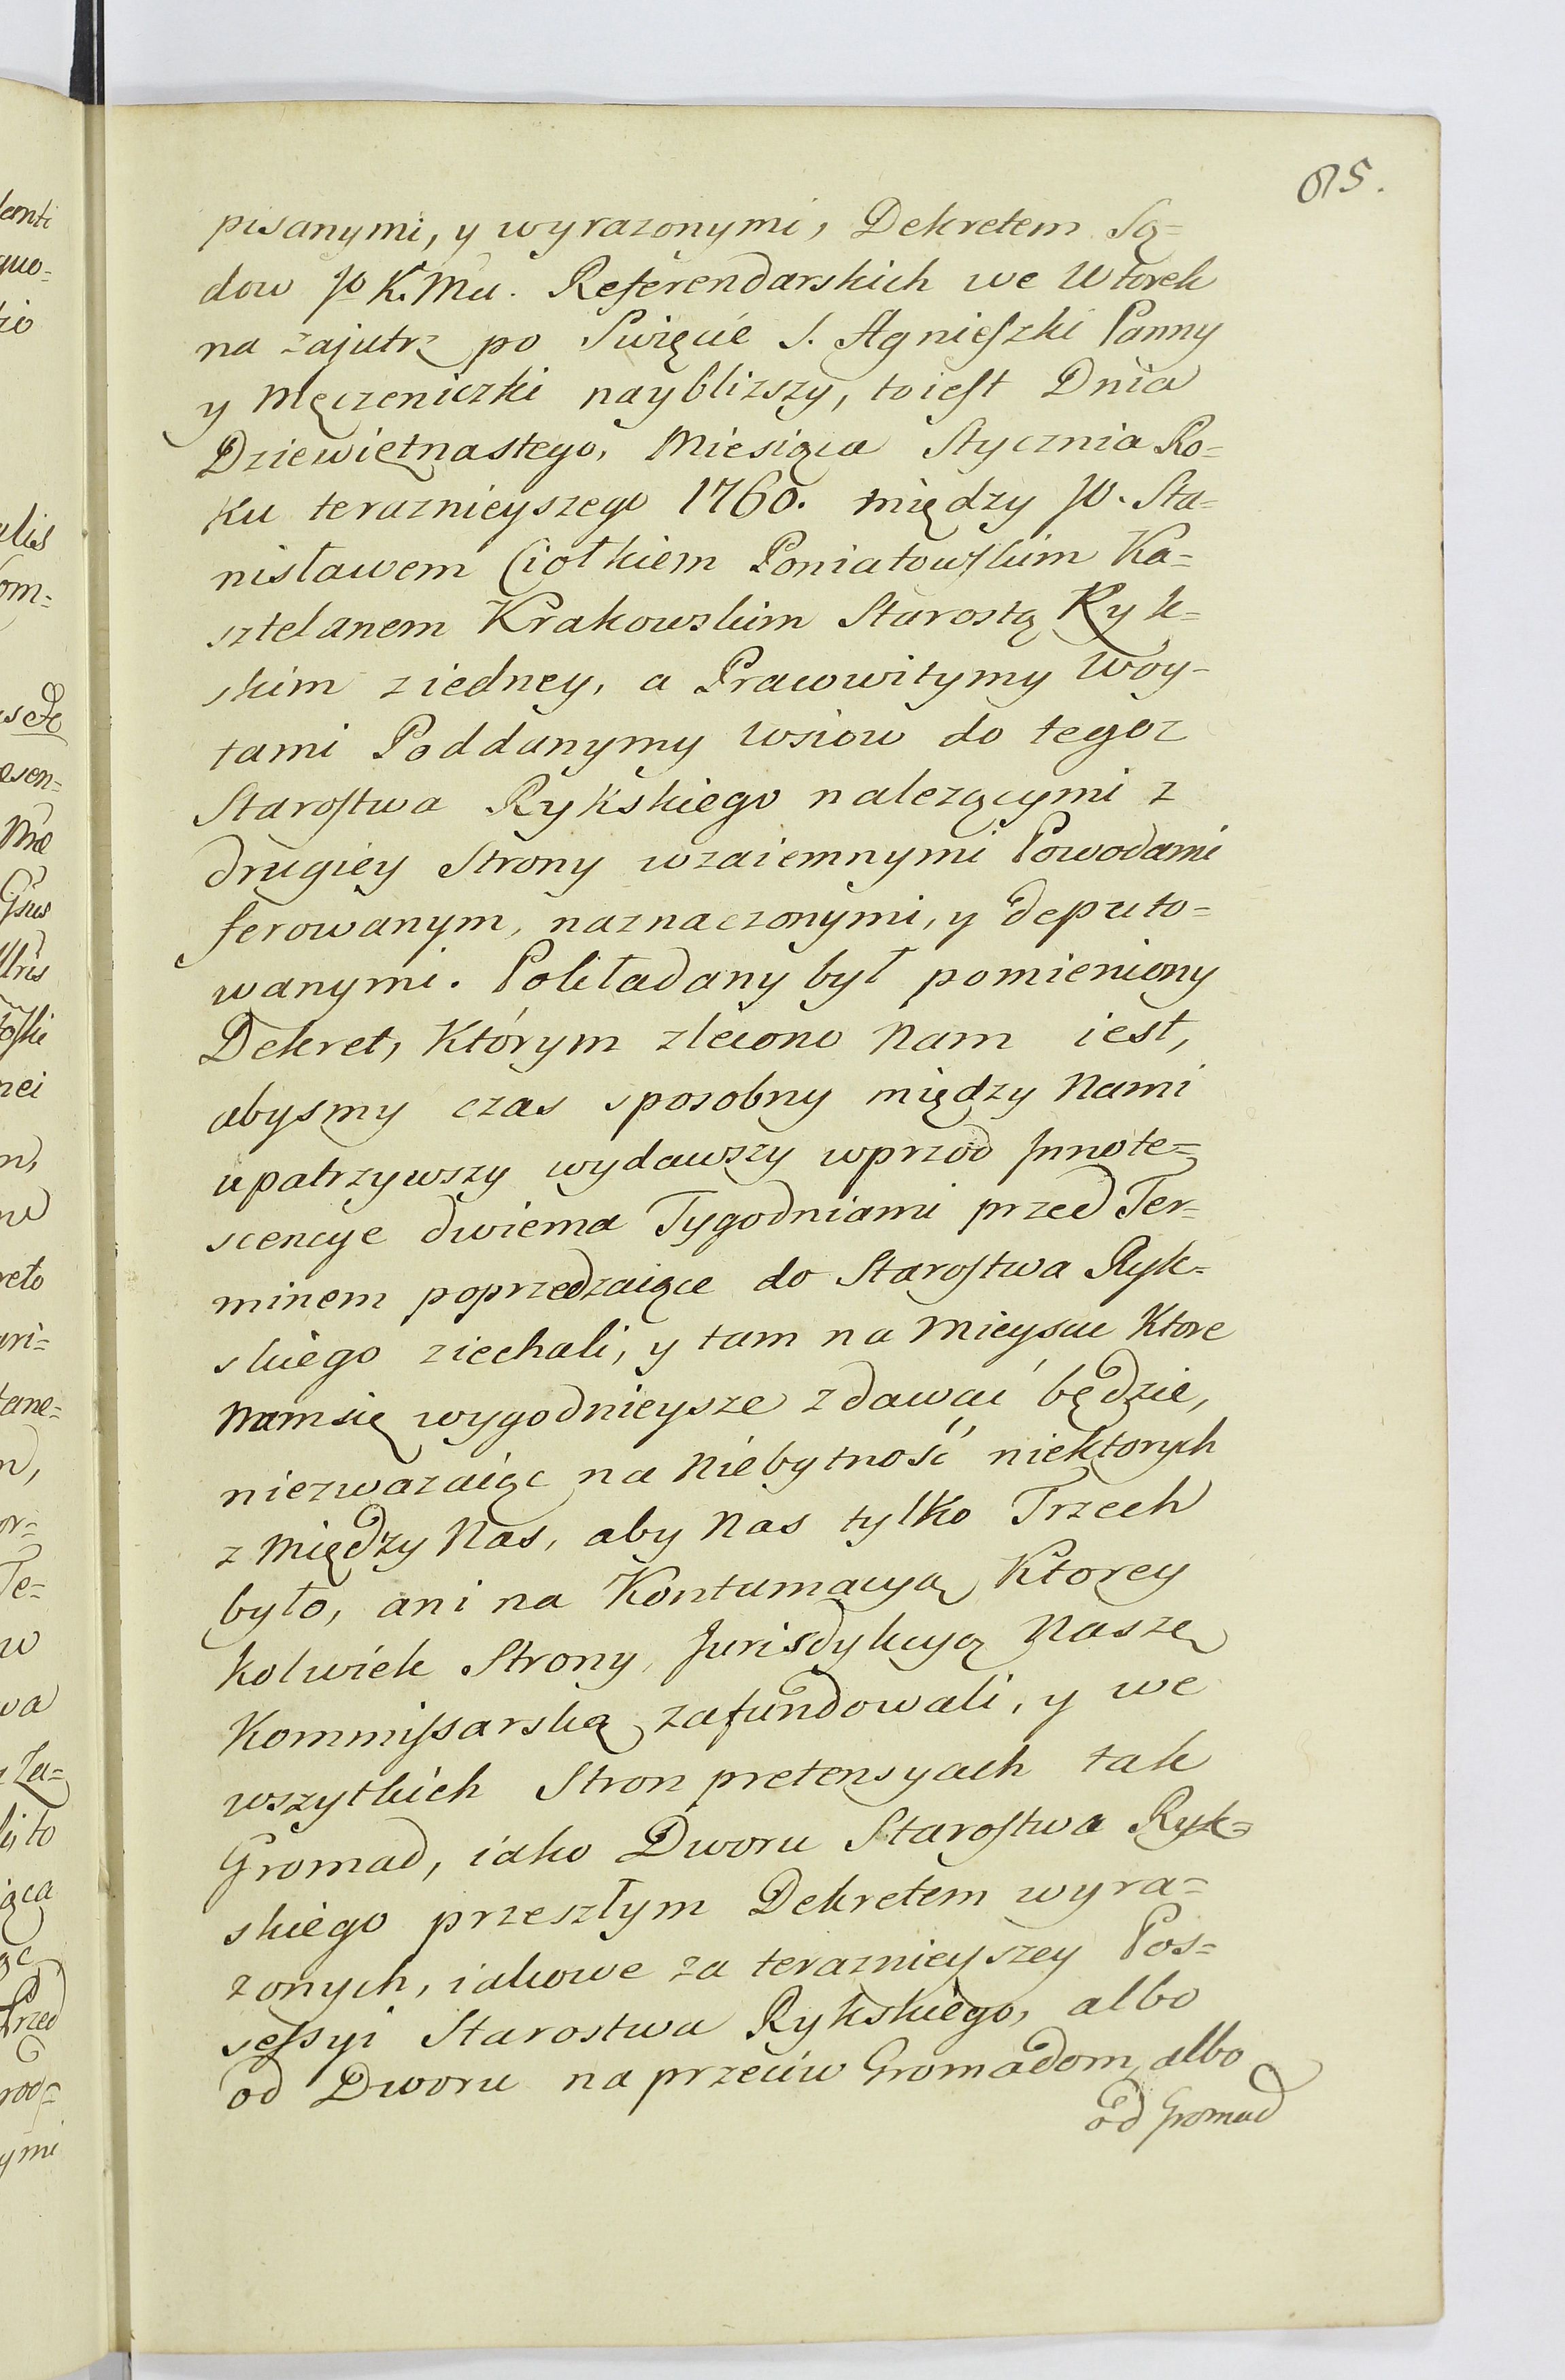 85.
pisanymi, y wyrazonymi, Dekretem Są=
dow Jo K. Mci. Referendarskich we Wtorek
na zajutrz po Swięcie S. Agnieszki Panny
y Męczeniczki nayblizszy, toiest Dnia
Dziewiętnastego, Miesiąca Stycznia Ro=
ku teraznieyszego 1760. między JO. Sta=
nisławem Ciołkiem Poniatowskim Ka=
sztelanem Krakowskim Starostą Ryk=
skim ziedney, a Pracowitymy Woy=
tami Poddanymy wsiow do tegoz
Starostwa Rykskiego nalezącymi z
drugiey Strony wzaiemnymi Powodami
ferowanym, naznaczonymi, y deputo=
wanymi. Pokładany był pomieniony
Dekret, którym zlecono Nam iest,
abysmy czas sposobny między Nami
upatrzywszy wydawszy wprzod Innote=
scencye dwiema Tygodniami przed Ter=
minem poprzedzaiące do Starostwa Ryk=
skiego ziechali, y tam na mieyscu Ktore
Nam się wygodnieysze zdawać będzie,
niezwazaiąc na Niebytność niektorych
z między Nas, aby Nas tylko Trzech
było, ani na Kontumacyą Ktorey
kolwiek Strony, Jurisdykcyą Naszę
Kommissarską zafundowali, y we
wszytkich Stron pretensyach tak
Gromad, iako Dworu Starostwa Ryk=
skiego przeszłym Dekretem wyra=
zonych, iakowe za teraznieyszey Pos=
sessyi Starostwa Rykskiego, albo
od Dworu na przeciw Gromadom, albo
od Gromad
lemti
quo=
zio
alis
om=
esen=
Mae
nei
m,
reto
ari=
tane=
n,
or=
Te=
w
wa
Za=
ąca
Przed
rod=
ymi